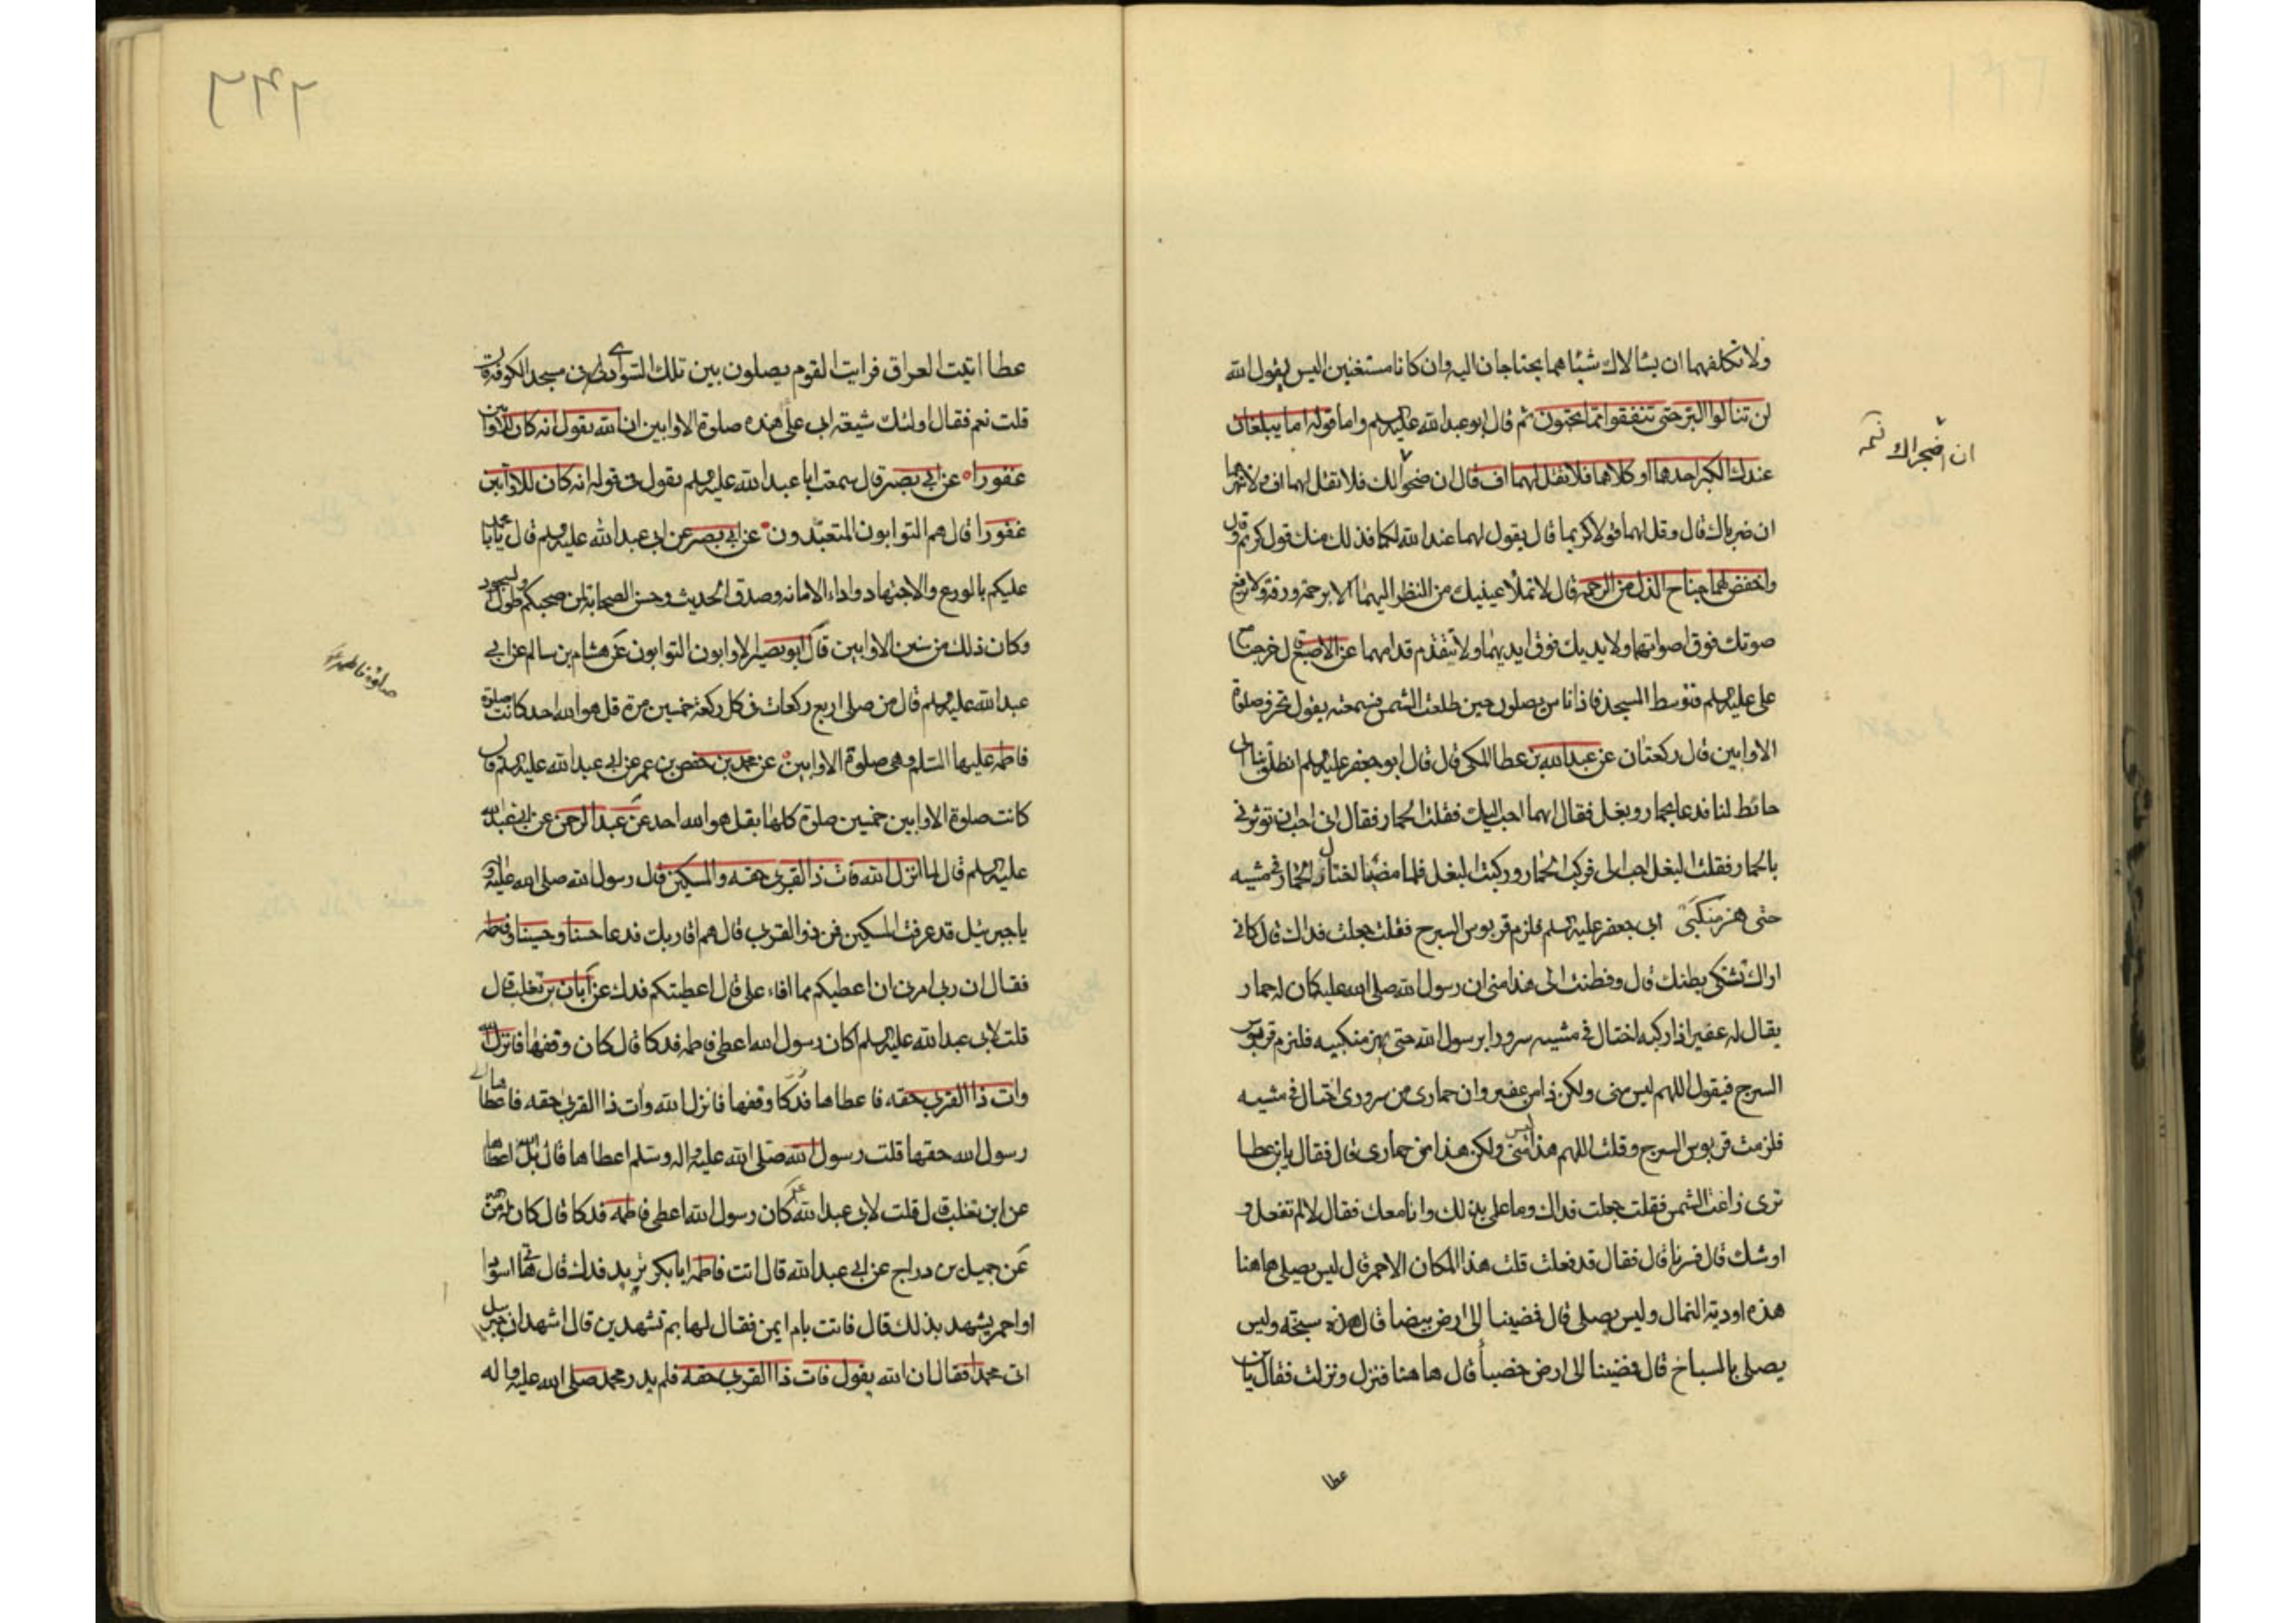 ولا تكلفهما ان يسالاك شيئا هما يحتاجان اليه وان كانا مستغنين اليس يقول الله
لن تنالوا البر حتى تنفقوا مما تحبون ثم قال ابو عبد الله عليه السلم واما قوله اما يبلغان
عندك الكبر احدهما او كلاهما فلا تقل لهما اف قال ان ضجراك فلا تقل لهما اف ولا تنهرهما
ان اضجراك
ان ضرباك قال وقل لهما قولا كريما قال يقول لهما غفر الله لكما فذلك منك قول كريم قال
واخفض لهما جناح الذل من الرحمة قال لا تملأ عينيك من النظر اليهما الا برحمة ورقة ولا ترفع
صوتك فوق اصواتهما ولا يديك فوق ايديهما ولا تتقدم قدامهما عن الاصبغ قال خرجنا مع
على عليه السلم فتوسط المسجد فاذا ناس يصلون حين طلعت الشمس فسمعته يقول نحروا صلوة
الاوابين قال ركعتان عن عبد الله بن عطا المكى قال قال ابو جعفر عليه السلم انطلق بنا الى
حائط لنا فدعا بحمار وبغل فقال ايهما احب اليك فقلت الحمار فقال انى احب ان توثرنى
بالحمار فقلت البغل احب الى فركب الحمار وركبت البغل فلما مضينا اختال الحمار فى مشيه
حتى هز منكبى ابى جعفر عليه السلم فلزم قربوس السرج فقلت جعلت فداك كانى
اراك تشتكى بطنك قال وفطنت الى هذا منى ان رسول الله صلى الله عليه كان له حمار
يقال له عفير اذا ركبه اختال فى مشيه سرورا برسول الله حتى يهز منكبيه فلزم قربوس
السرج فيقول اللهم ليس منى ولكن ذا من عفير وان حمارى من سرورى اختال فى مشيه
فلزمت قربوس السرج وقلت اللهم هذا ليس منى ولكن هذا من حمارى قال فقال يا بن عطا
ترى زاغت الشمس فقلت جعلت فداك وما علمى بذلك وانا معك فقال لا لم تفعل و
اوشك قال فسرنا قال فقال قد فعلت قلت هذا المكان الاحمر قال ليس يصلى هاهنا
هذه اودية النمال وليس يصلى قال فمضينا الى ارض بيضا قال هذه سبخة وليس
يصلى بالسباخ قال فمضينا الى ارض حصبا قال ها هنا فنزل ونزلت فقال يا بن
عطا
عطا اتيت العراق فرايت القوم يصلون بين تلك السوارى فى مسجد الكوفة قال
قلت نعم فقال اولئك شيعة ابى على هذه صلوة الاوابين ان الله يقول انه كان للاوابين
غفورا عن ابى بصير قال سمعت ابا عبد الله عليه السلم يقول فى قوله انه كان للاوابين
غفورا قال هم التوابون المتعبدون عن ابى بصير عن ابى عبد الله عليه السلم قال يا با محمد
عليكم بالورع والاجتهاد واداء الامانه وصدق الحديث وحسن الصحابة لمن صحبكم وطول السجود
وكان ذلك من سنن الاوابين قال ابو بصير الاوابون التوابون عن هشام بن سالم عن ابى
عبد الله عليه السلم قال من صلى اربع ركعات فى كل ركعة خمسين مرة قل هو الله احد كانت صلوة
صلوة فاطمه
فاطمه عليها السلم وهى صلوة الاوابين عن محمد بن حفص بن عمر عن ابى عبد الله عليه السلم قال
كانت صلوة الاوابين خمسين صلوة كلها بقل هو الله احد عن عبد الرحمن عن ابى عبد الله
عليه السلم قال لما انزل الله فات ذا القربى حقه والمسكين قال رسول الله صلى الله عليه واله
يا جبرئيل قد عرفت المسكين فمن ذو القربى قال هم اقاربك فدعا حسنا وحسينا وفاطمه
فقال ان ربى امرنى ان اعطيكم مما افاء على قال اعطيتكم فدك عن ابان بن تغلب قال
قلت لابى عبد الله عليه السلم اكان رسول الله اعطى فاطمه فدكا قال كان وقفها فانزل الله
وات ذا القربى حقه فاعطاها فدكا وقفها فانزل الله وات ذا القربى حقه فاعطاها
رسول الله حقها قلت رسول الله صلى الله عليه واله وسلم اعطاها قال بل الله اعطاها
عن ابن تغلب قال قلت لابى عبد الله كان رسول الله اعطى فاطمه فدكا قال كان لها من الله
عن جميل بن دراج عن ابى عبد الله قال اتت فاطمه ابا بكر تريد فدك قال هاتى اسود
او احمر يشهد بذلك قال فاتت بام ايمن فقال لها بم تشهدين قال اشهد ان جبرئيل
اتى محمدا فقال ان الله يقول فات ذا القربى حقه فلم يدر محمد صلى الله عليه واله